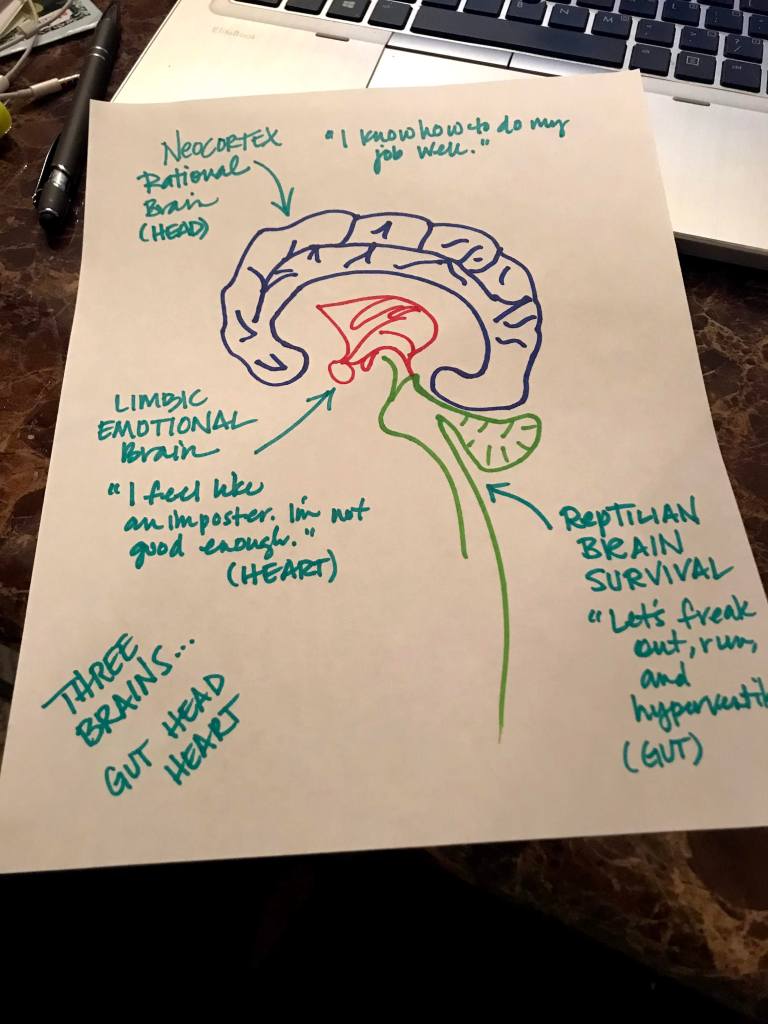 EliteBook
NEOCORTEX
Rational
Brain
(HEAD)
"I know how to do my
job well."
LIMBIC
EMOTIONAL
Brain
"I feel like
an imposter. I'm not
good enough."
(HEART)
REPTILIAN
BRAIN
SURVIVAL
"Let's freak
out, run,
and
(GUT)
THREE
BRAINS...
GUT HEAD
HEART